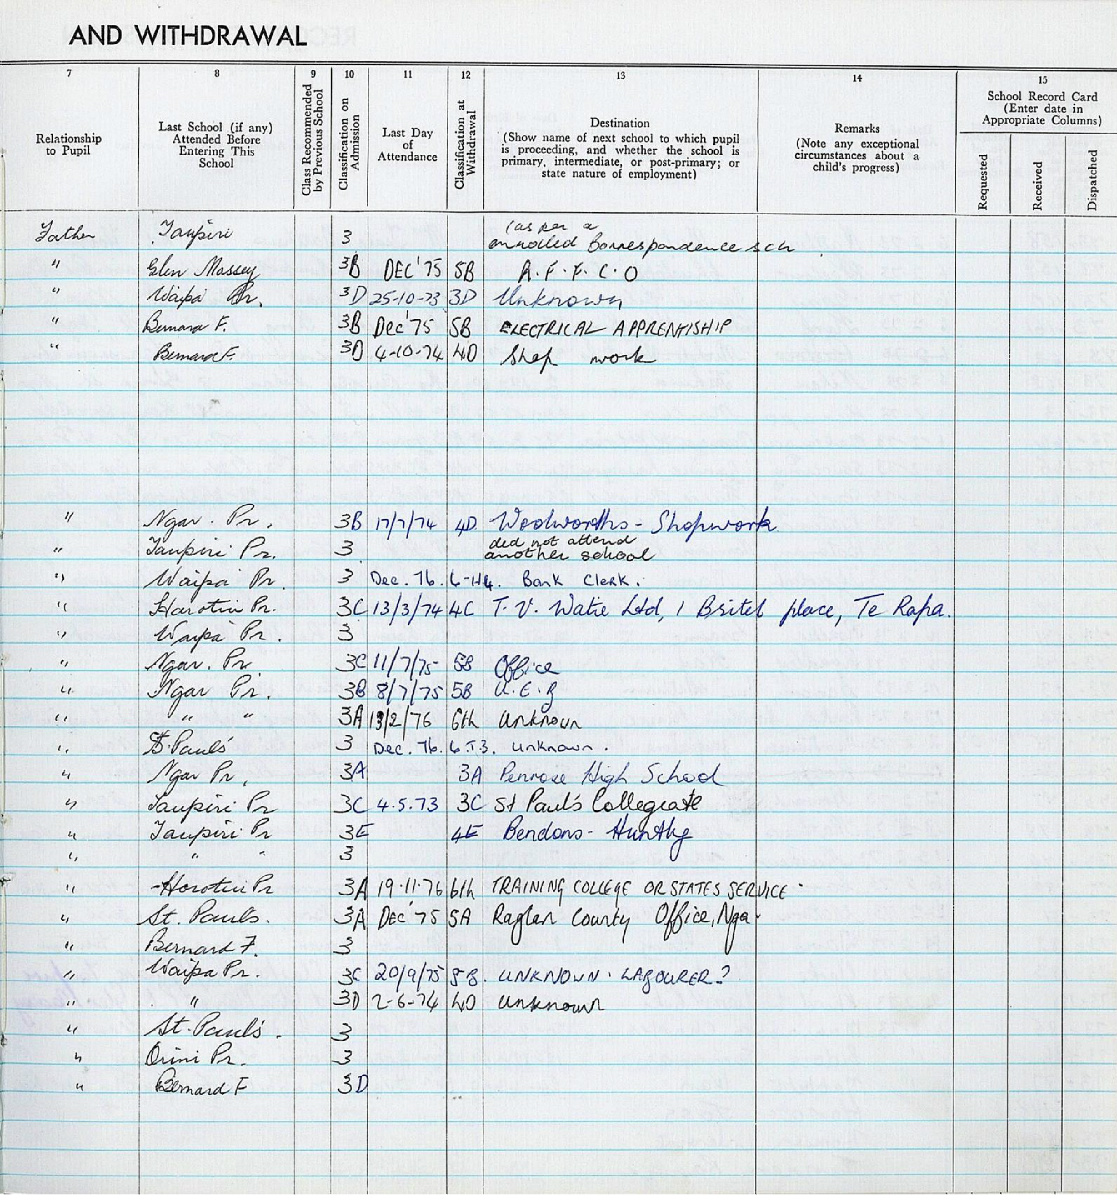 AND WITHDRAWAL
7 8 9 10 11 12 13 14 15
Relationship to Pupil
Last School (if any) Attended Before Entering This School
Class Recommended by Previous School
Classification on Admission
Last Day of Attendance
Classification at Withdrawal
Destination
(Show name of next school to which pupil is proceeding, and whether the school is primary, intermediate, or post-primary; or state nature of employment)
Remarks
(Note any exceptional circumstances about a child's progress)
School Record Card
(Enter date in Appropriate Columns)
Requested
Received
Dispatched
Father Taupiri 3 (as per a
enrolled Correspondence sch
" Glen Massey 3B DEC '75 5B A.F.F.C.O
" Waipa Pr. 3D 25-10-73 3D Unknown
" Bernard F. 3B Dec '75 5B ELECTRICAL APPRENTISHIP
" Bernard F. 3D 4-10-74 4D Shop work
" Ngar. Pr. 3B 17/7/74 4D Woolworths - Shopwork
" Taupiri Pr. 3 did not attend
another school
" Waipa Pr. 3 Dec. 76. 6-H4. Bank Clerk.
" Horotiu Pr. 3C 13/3/74 4C T.V. Watie Ltd, 1 Bristel place, Te Rapa.
" Waipa Pr. 3
" Ngar. Pr 3C 11/7/75 5B Office
" Ngar Pr. 3B 8/7/75 5B U.E.B
" " " 3A 13/2/76 6th Unknown
" St. Paul's 3 Dec. 76. 6T3. Unknown.
" Ngar Pr. 3A 3A Penrose High School
" Taupiri Pr 3C 4.5.73 3C St Paul's Collegiate
" Taupiri Pr 3E 4E Bendons - Huntly
" " " 3
" Horotiu Pr 3A 19.11.76 6th TRAINING COLLEGE OR STATES SERVICE.
" St. Pauls. 3A Dec '75 5A Raglan County Office, Nga.
" Bernard F. 3
" Waipa Pr. 3C 20/9/75 5B. UNKNOWN. LABOURER?
" " 3D 2-6-74 4D Unknown
" St. Paul's. 3
" Orini Pr. 3
" Bernard F 3D